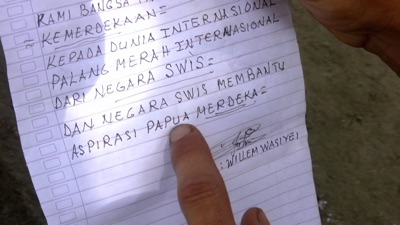 KAMI BANGSA
= KEMERDEKAAN =
KEPADA DUNIA INTERNASIONAL
PALANG MERAH INTERNASIONAL
DARI NEGARA SWIS =
DAN NEGARA SWIS MEMBANTU
ASPIRASI PAPUA MERDEKA =
: WILLEM WASIYEI